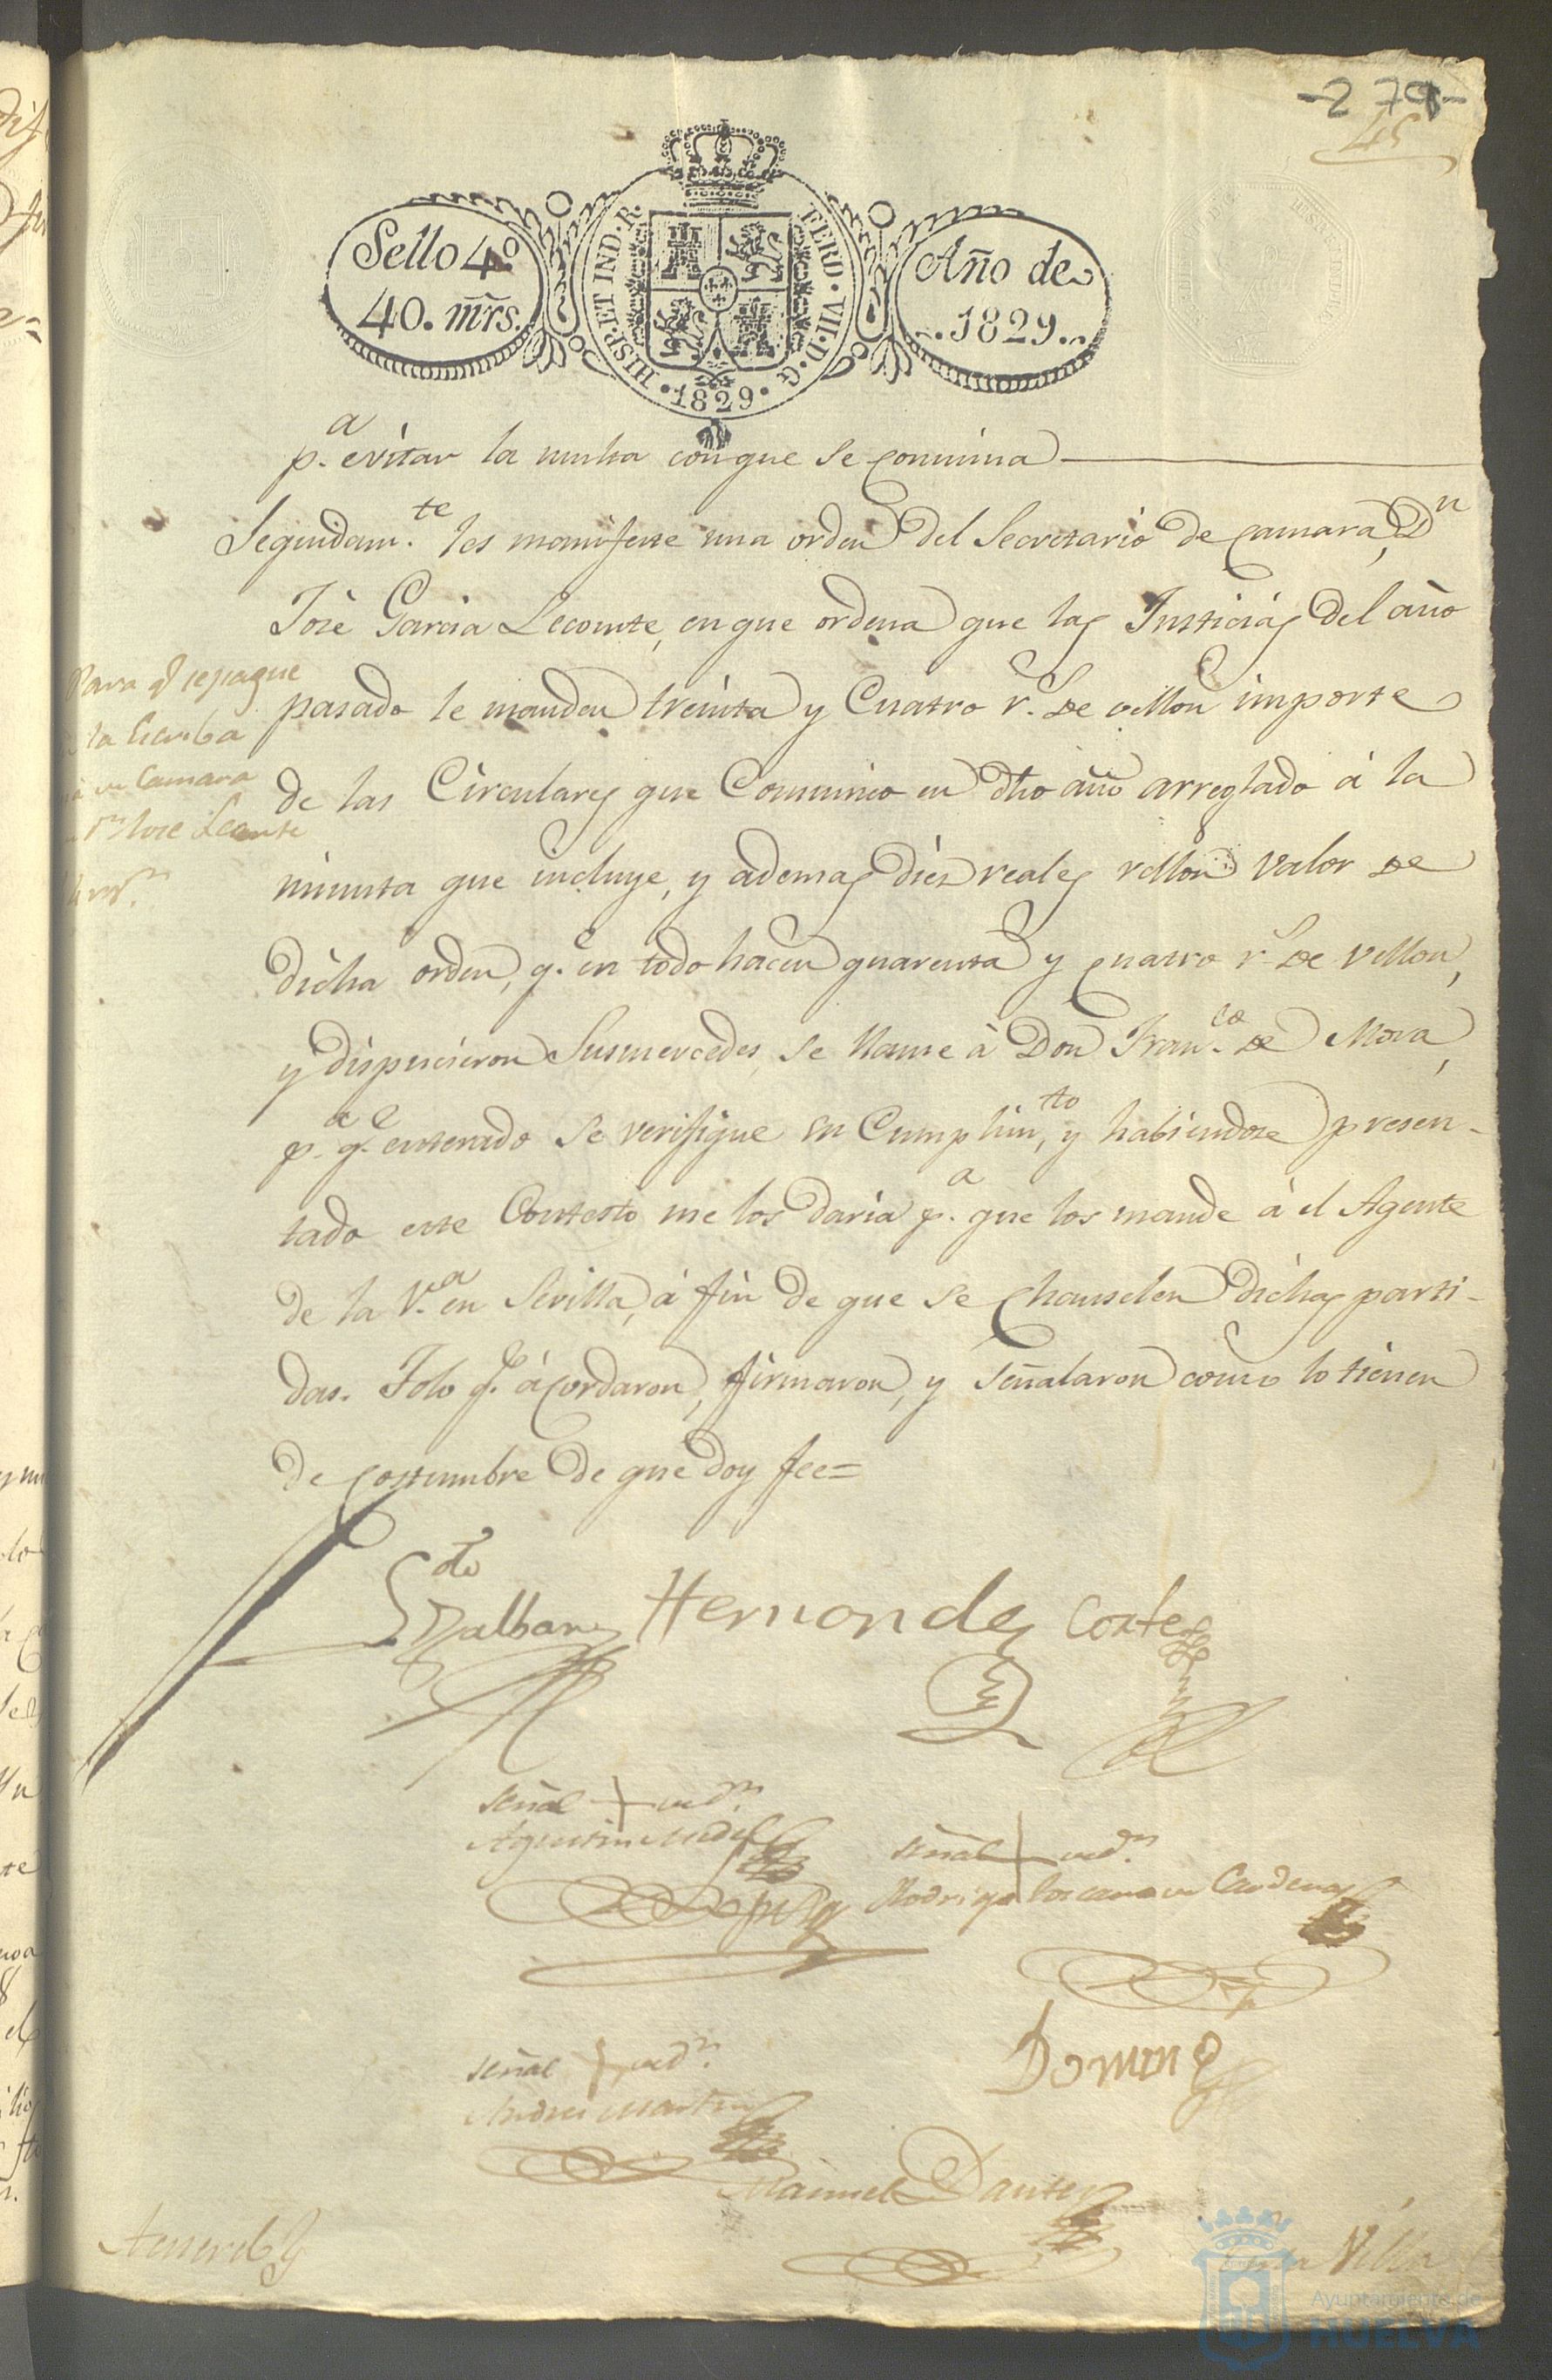 -279-
45
Sello 4º
40. mrs.
HISP. ET IND. R.
FERD. VII. D. G.
.1829.
Año de
.1829.
p.ª evitar la multa con que se conmina
Seguidam.te les manifeste una orden del Secretario de Camara, Dn
José Garcia Lecomte, en que ordena que las Justicias del año
pasado le manden treinta y Cuatro r.s de vellon importe
de las Circulares que Comunico en dho año arreglado á la
minuta que incluye, y ademas diez reales vellon valor de
dicha orden, q.e en todo hacen quarenta y quatro r.s de vellon,
y dispusieron Susmercedes, se llame à Don Fran.co de Mora,
p.a q.e enterado se verifique su Cumplim.to, y habiendose presen-
tado este Contestó me los daria p.a que los mande á el Agente
de la V.a en Sevilla, á fin de que se chanselen dichas parti-
das. Y lo q.e acordaron, firmaron, y señalaron como lo tienen
de costumbre de que doy fee=
Para q.e se pague
la Escriba
de Camara
Jose Lecomte
Hernandes Cortes
señal + de D.n
Agustin
señal + de D.n
Rodrigo de Cardenas
señal + de D.n
Andres Martin
Doming
Manuel
Acuerdo
En la Villa
Ayuntamiento de
HUELVA